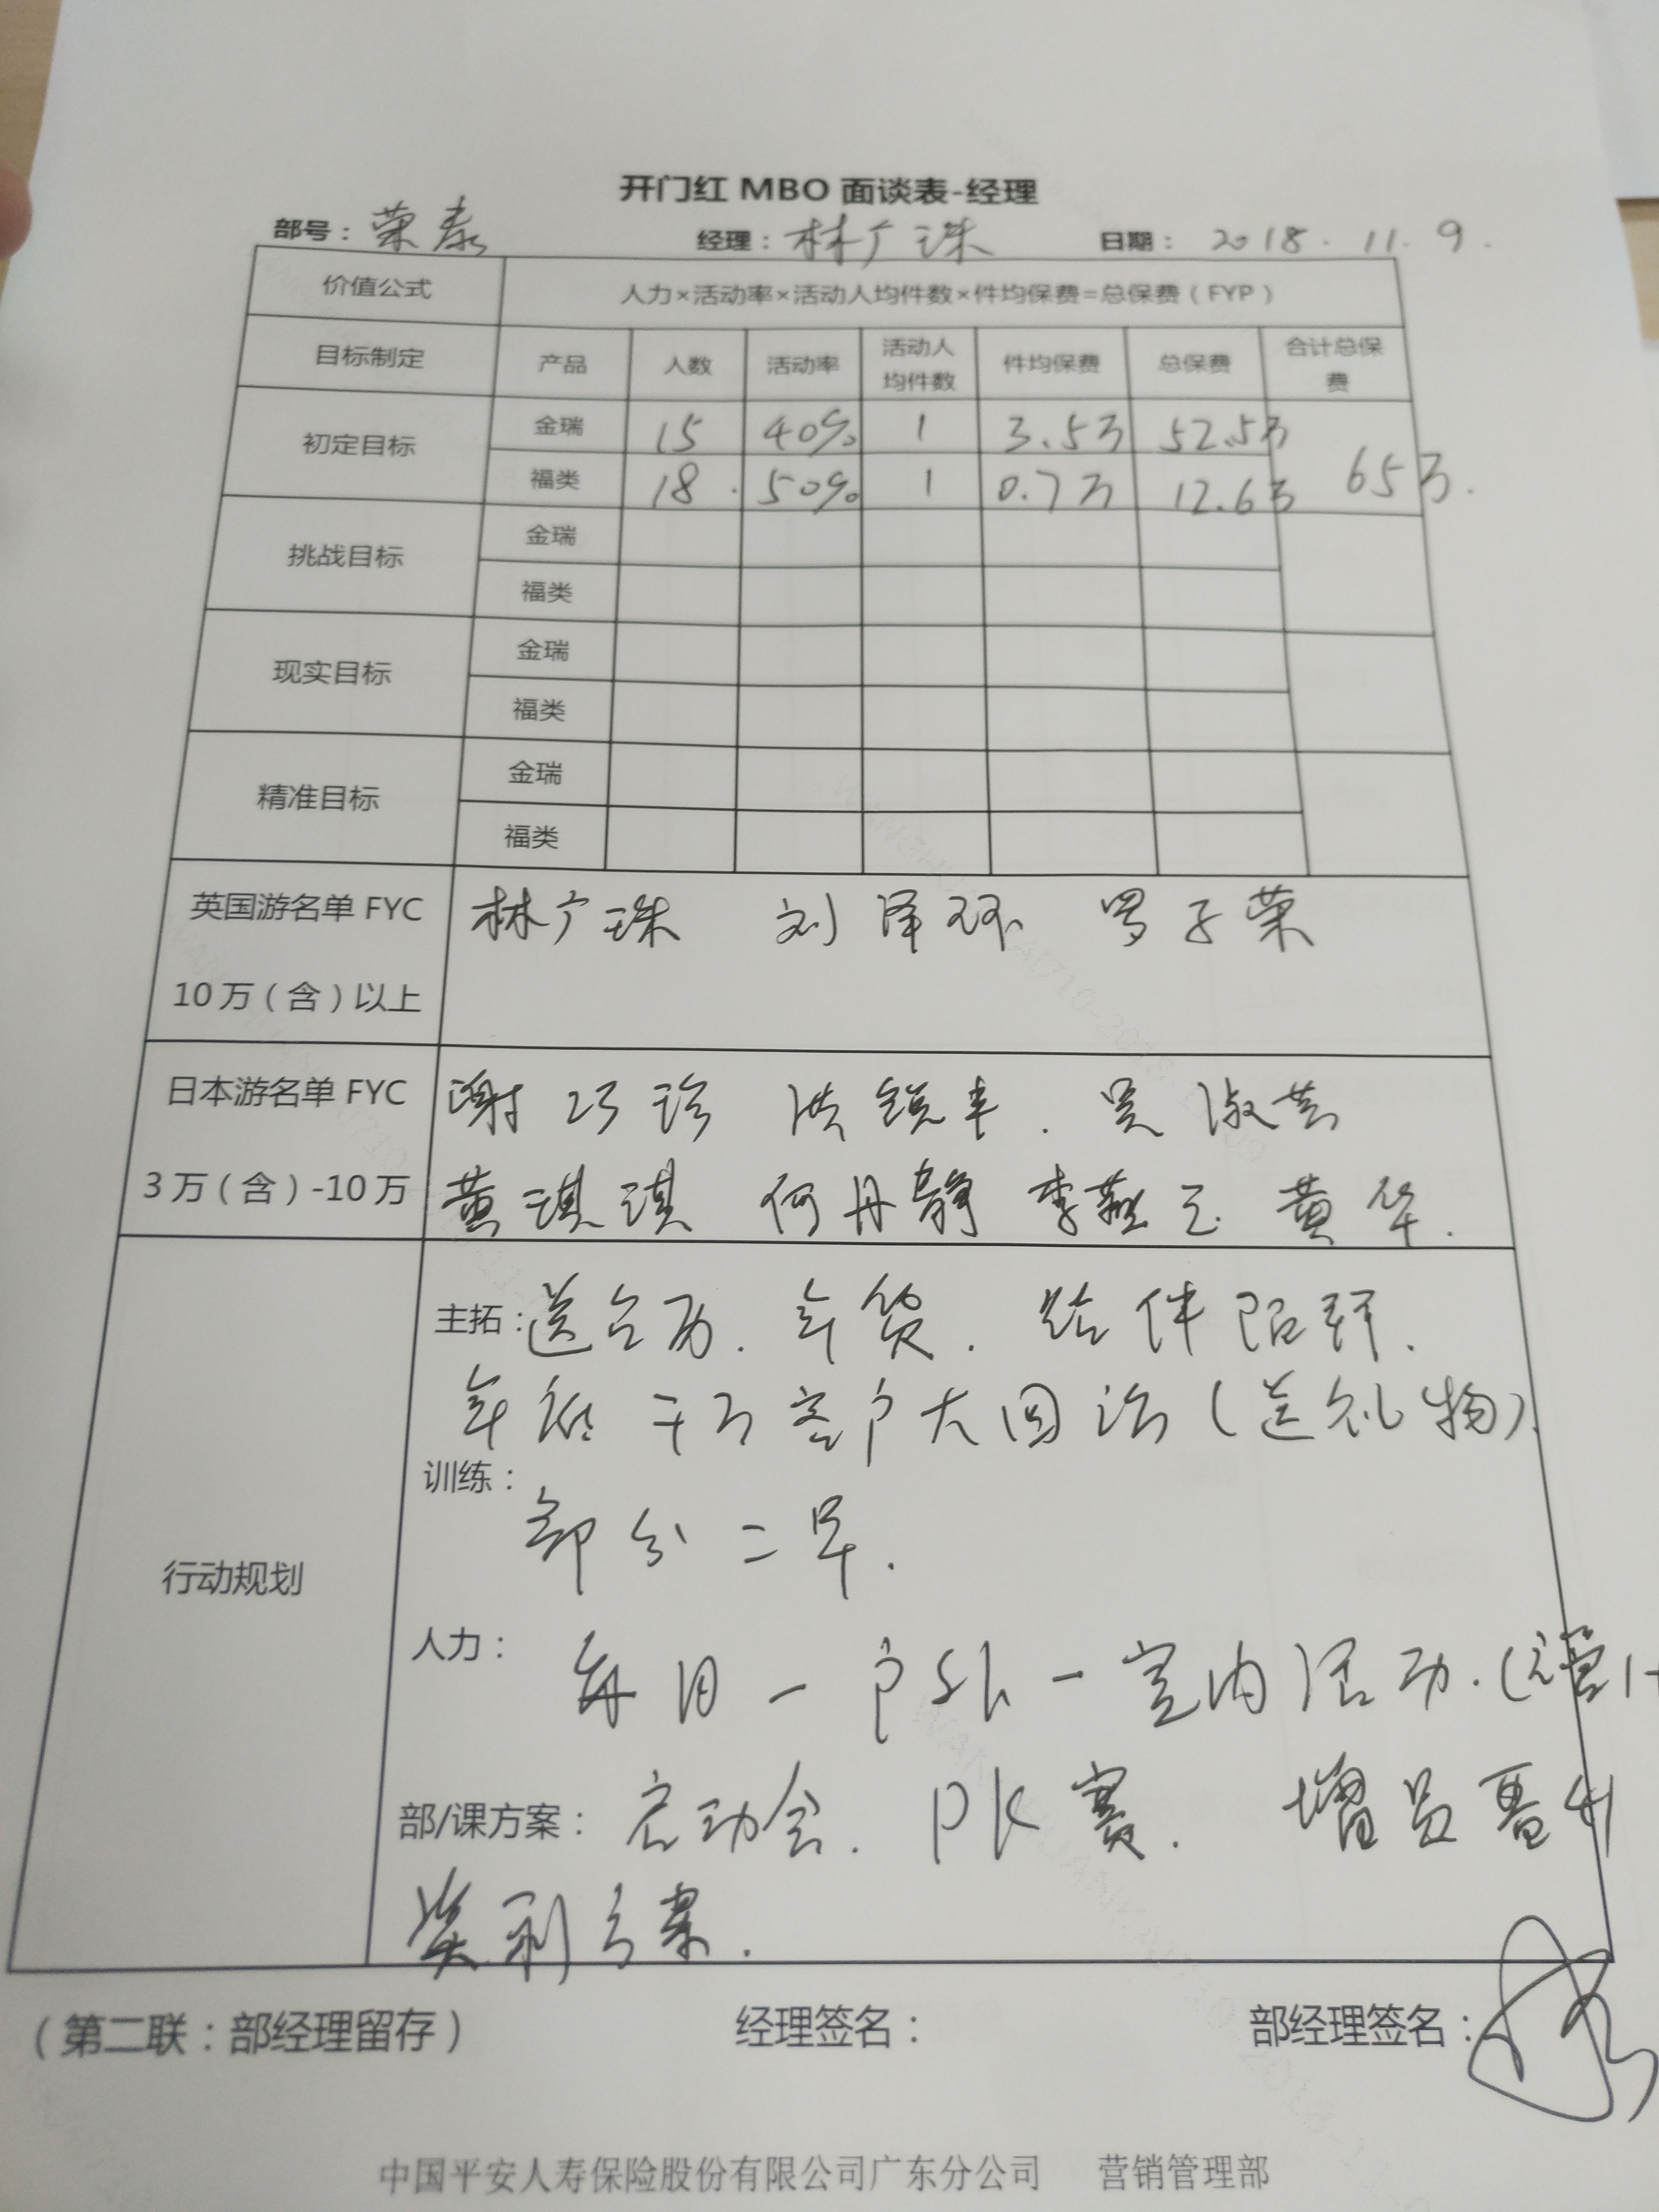 开门红 MBO 面谈表-经理
部号：荣泰 经理：林广珠 日期：2018.11.9.
价值公式 人力×活动率×活动人均件数×件均保费=总保费（FYP）
目标制定 产品 人数 活动率 活动人均件数 件均保费 总保费 合计总保费
初定目标 金瑞 15 40% 1 3.5万 52.5万 65万.
福类 18. 50% 1 0.7万 12.6万
挑战目标 金瑞
福类
现实目标 金瑞
福类
精准目标 金瑞
福类
英国游名单 FYC 林广珠 刘泽环 罗子荣
10万（含）以上
日本游名单 FYC 谢巧珍 洪锐丰. 吴淑
3万（含）-10万 黄琪琪 何丹静 李燕玉 黄华.
行动规划
主拓：送台历. 年货. 结伴陪拜.
年初千万客户大回访(送礼物).
训练：
部分二早.
人力：每月一户外一室内活动.(运营
部/课方案：启动会. PK赛. 增员晋升
奖利方案.
（第二联：部经理留存） 经理签名： 部经理签名：
中国平安人寿保险股份有限公司广东分公司 营销管理部